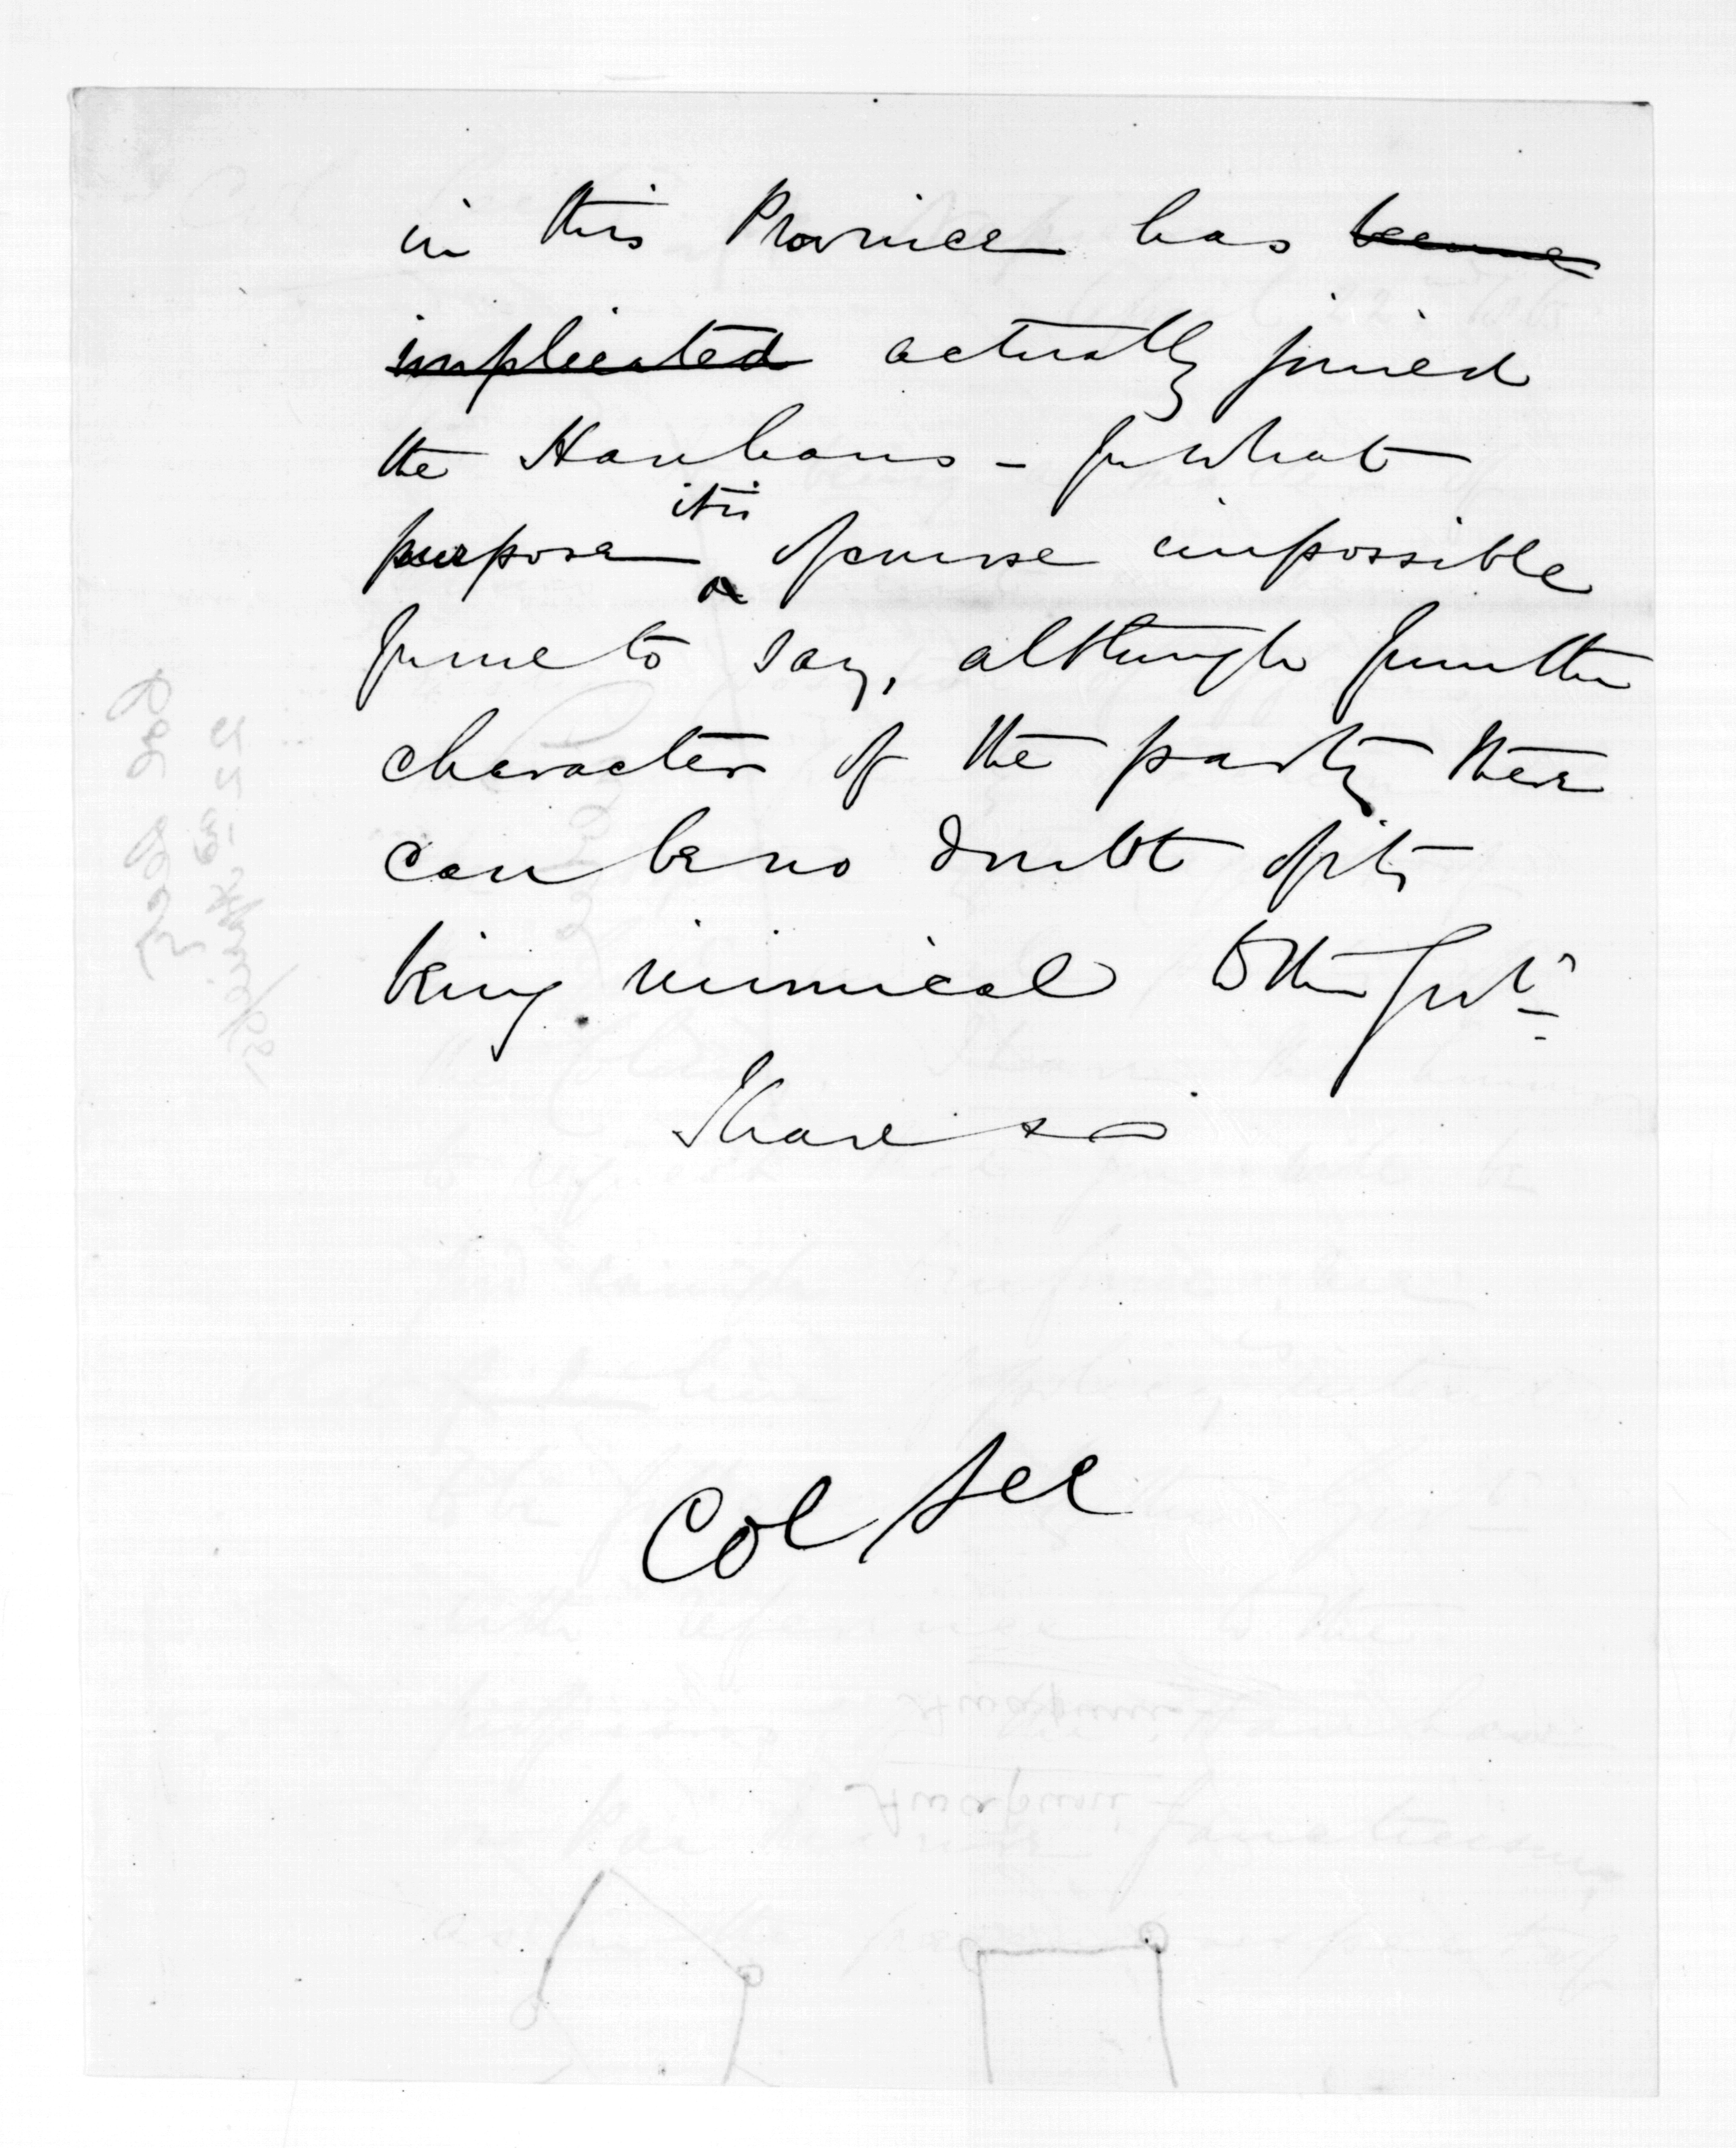 in this Province has became
implicated actually joined
the Hauhaus - for what
it is
purpose of course impossible
for me to say, although from the
character of the party there
can be no doubt of its
being inimical to the Govt.
I have &c
Col Sec